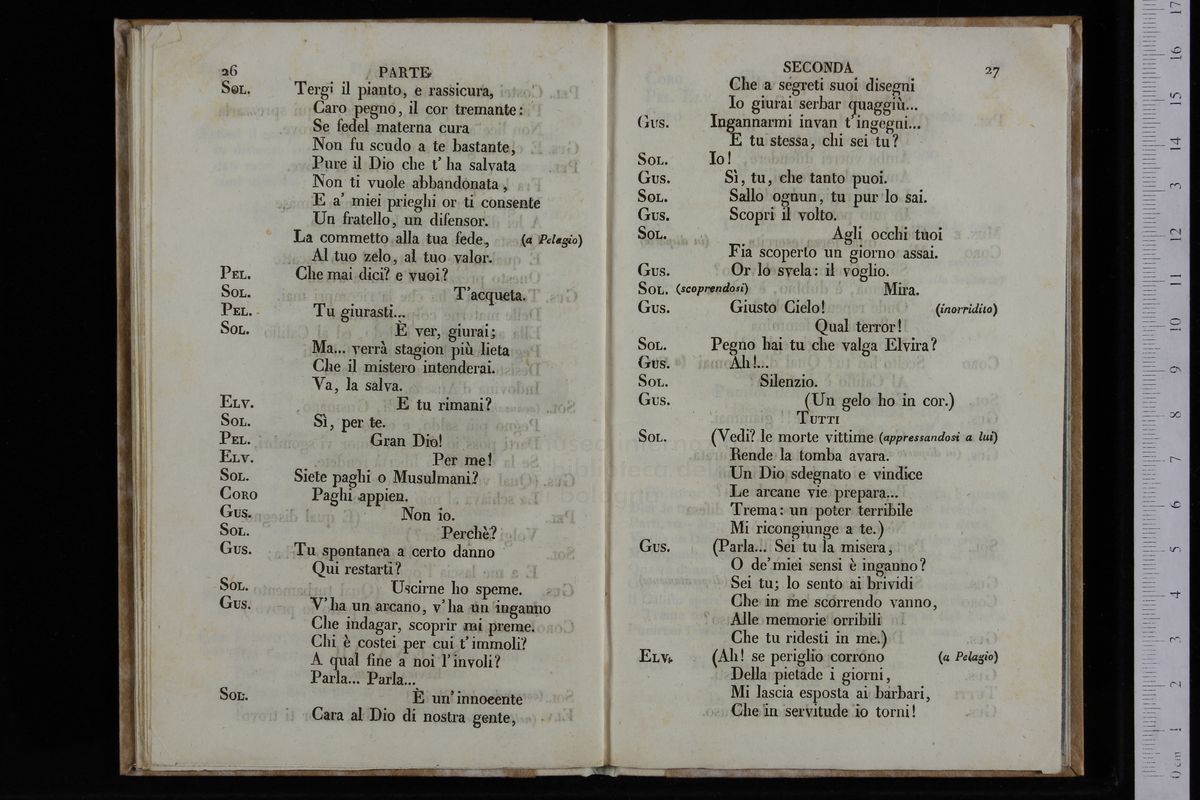 26 PARTE
SOL. Tergi il pianto, e rassicura,
Caro pegno, il cor tremante:
Se fedel materna cura
Non fu scudo a te bastante,
Pure il Dio che t' ha salvata
Non ti vuole abbandonata,
E a' miei prieghi or ti consente
Un fratello, un difensor.
La commetto alla tua fede, (a Pelagio)
Al tuo zelo, al tuo valor.
PEL. Che mai dici? e vuoi?
SOL. T'acqueta.
PEL. Tu giurasti...
SOL. È ver, giurai;
Ma... verrà stagion più lieta
Che il mistero intenderai.
Va, la salva.
ELV. E tu rimani?
SOL. Sì, per te.
PEL. Gran Dio!
ELV. Per me!
SOL. Siete paghi o Musulmani?
CORO Paghi appien.
GUS. Non io.
SOL. Perchè?
GUS. Tu spontanea a certo danno
Qui restarti?
SOL. Uscirne ho speme.
GUS. V'ha un arcano, v'ha un inganno
Che indagar, scoprir mi preme.
Chi è costei per cui t'immoli?
A qual fine a noi l'involi?
Parla... Parla...
SOL. È un'innocente
Cara al Dio di nostra gente,
SECONDA 27
Che a segreti suoi disegni
Io giurai serbar quaggiù...
GUS. Ingannarmi invan t'ingegni...
E tu stessa, chi sei tu?
SOL. Io!
GUS. Sì, tu, che tanto puoi.
SOL. Sallo ognun, tu pur lo sai.
GUS. Scopri il volto.
SOL. Agli occhi tuoi
Fia scoperto un giorno assai.
GUS. Or lo svela: il voglio.
SOL. (scoprendosi) Mira.
GUS. Giusto Cielo! (inorridito)
Qual terror!
SOL. Pegno hai tu che valga Elvira?
GUS. Ah!...
SOL. Silenzio.
GUS. (Un gelo ho in cor.)
TUTTI
SOL. (Vedi? le morte vittime (appressandosi a lui)
Rende la tomba avara.
Un Dio sdegnato e vindice
Le arcane vie prepara...
Trema: un poter terribile
Mi ricongiunge a te.)
GUS. (Parla... Sei tu la misera,
O de'miei sensi è inganno?
Sei tu; lo sento ai brividi
Che in me scorrendo vanno,
Alle memorie orribili
Che tu ridesti in me.)
ELV. (Ah! se periglio corrono (a Pelagio)
Della pietade i giorni,
Mi lascia esposta ai barbari,
Che in servitude io torni!